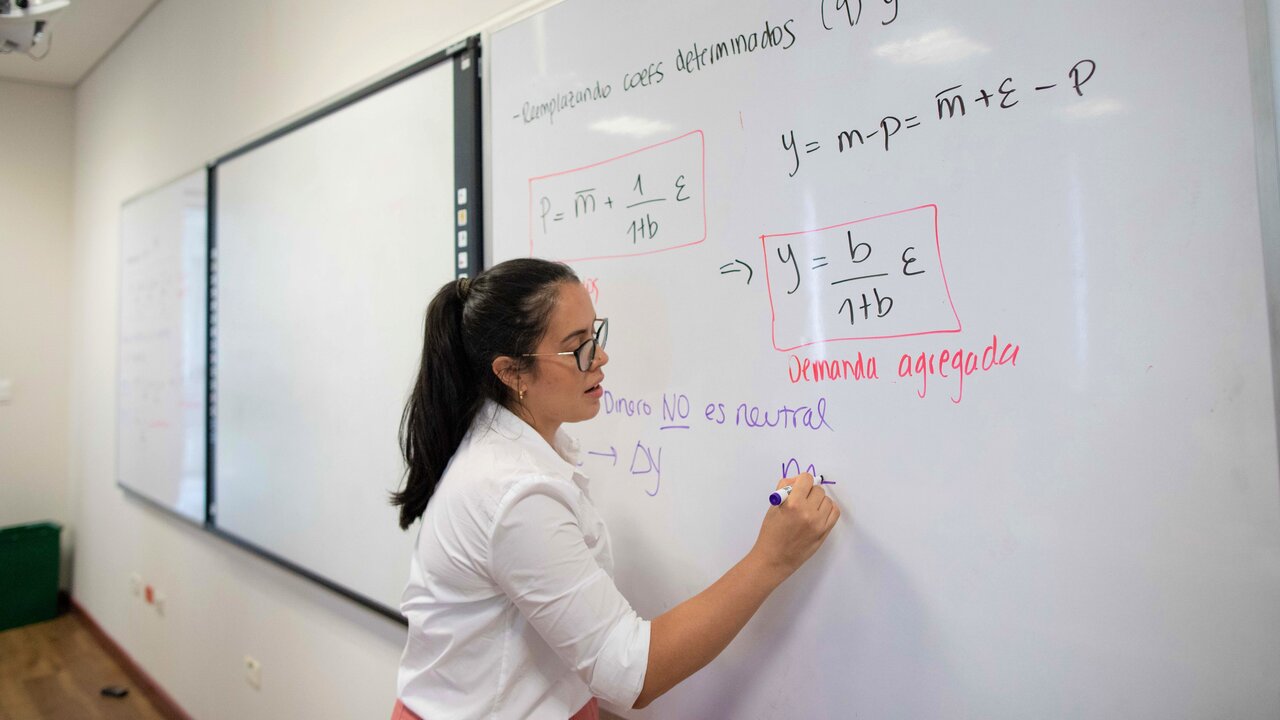 -Reemplazando coefs determinados (9) y
y = m-p = m̅ + ε - p
P = m̅ + 1/(1+b) ε
=> y = b/(1+b) ε
Demanda agregada
Dinero NO es neutral
→ Δy
m